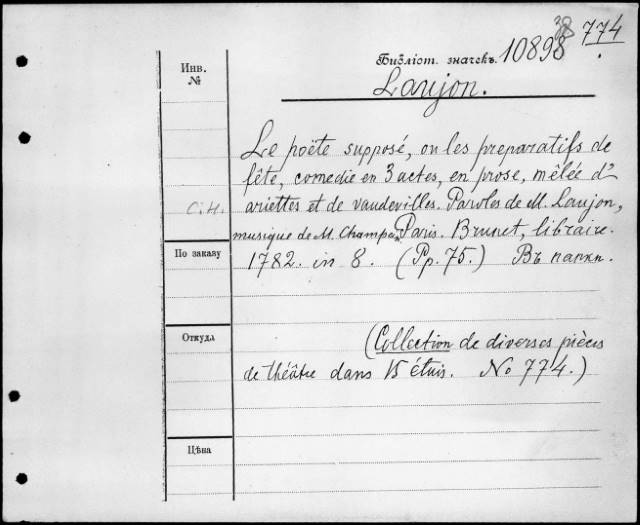 774
Библіот. значекъ. 10898
Инв.
№
Laujon.
Le poëte supposé, ou les preparatifs de
fête, comedie en 3 actes, en prose, mêlée d'
ariettes et de vaudevilles. Paroles de M. Laujon,
C.H.
musique de M. Champein. Paris. Brunet, libraire.
По заказу
1782. in 8. (Pp. 75.) Въ папкѣ.
Откуда
(Collection de diverses pièces
de théâtre dans 15 étuis. No 774.)
Цѣна